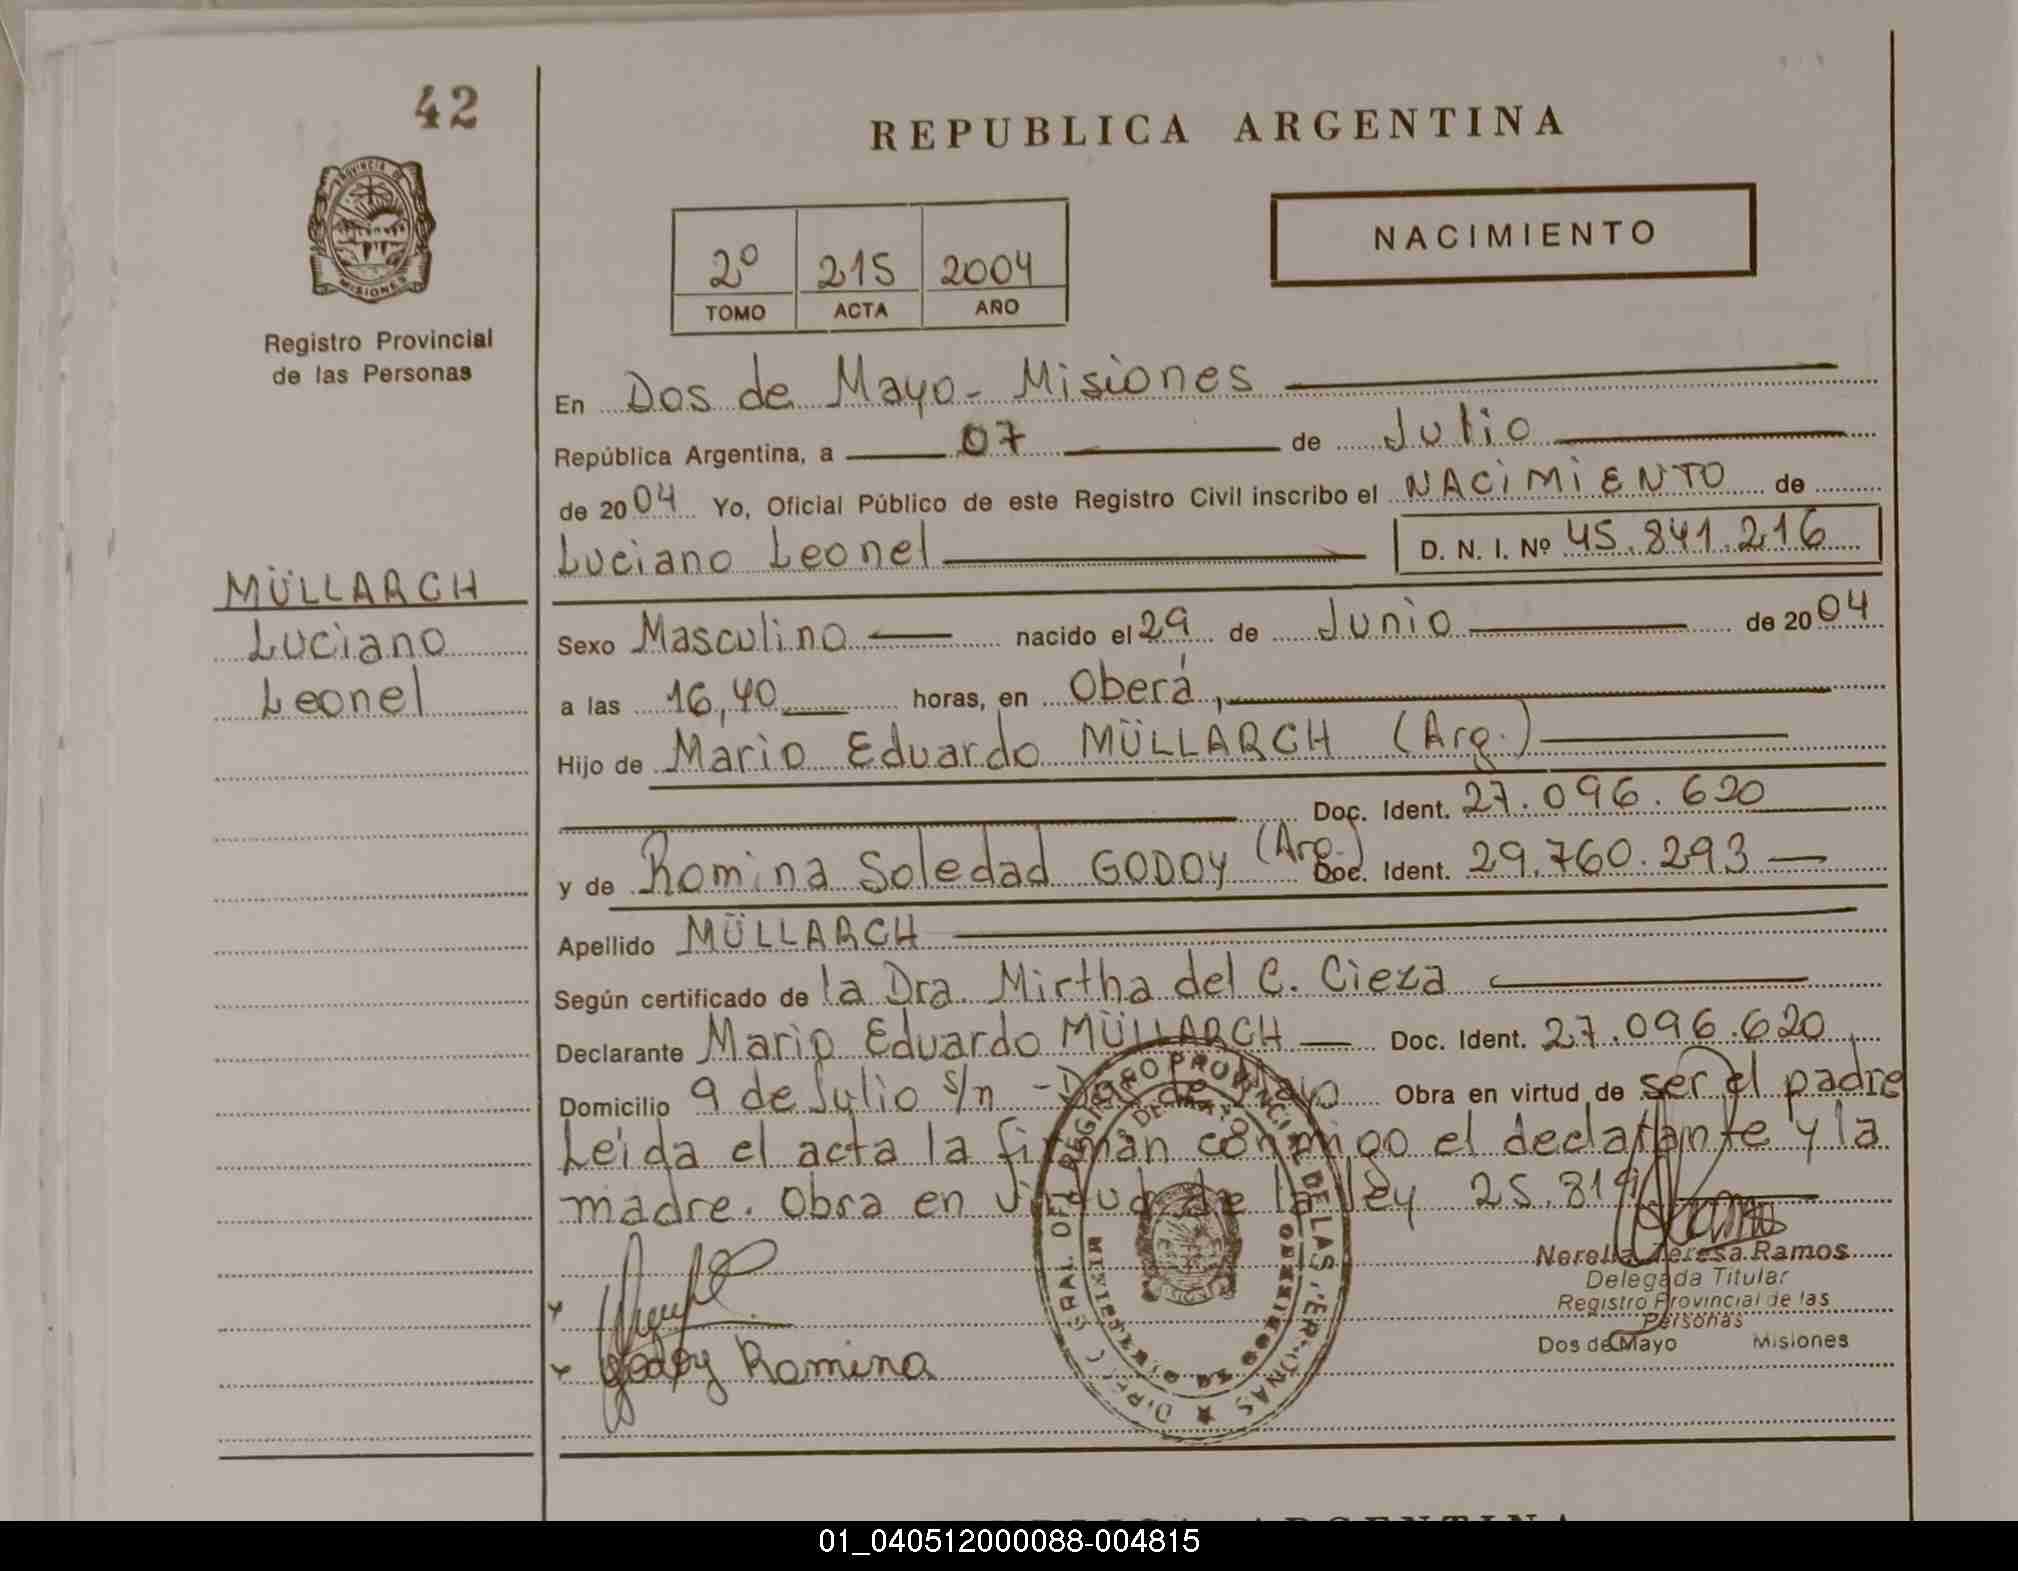 42
REPUBLICA ARGENTINA
PROVINCIA DE
MISIONES
Registro Provincial
de las Personas
NACIMIENTO
2º 215 2004
TOMO ACTA AÑO
En Dos de Mayo - Misiones
República Argentina, a 07 de Julio
de 2004 Yo, Oficial Público de este Registro Civil inscribo el NACIMIENTO de
Luciano Leonel D. N. I. Nº 45.841.216
MÜLLARCH
Luciano
Leonel
Sexo Masculino nacido el 29 de Junio de 2004
a las 16,40 horas, en Oberá,
Hijo de Mario Eduardo MÜLLARCH (Arg.)
Doc. Ident. 27.096.620
y de Romina Soledad GODOY (Arg.) Doc. Ident. 29.760.293
Apellido MÜLLARCH
Según certificado de la Dra. Mirtha del C. Cieza
Declarante Mario Eduardo MÜLLARCH Doc. Ident. 27.096.620
Domicilio 9 de Julio s/n - Dos de Mayo Obra en virtud de ser el padre
Leida el acta la firman conmigo el declarante y la
madre. Obra en virtud de la ley 25.819
Nerelia Teresa Ramos
Delegada Titular
Registro Provincial de las
Personas
Dos de Mayo Misiones
Godoy Romina
REPUBLICA ARGENTINA
01_040512000088-004815